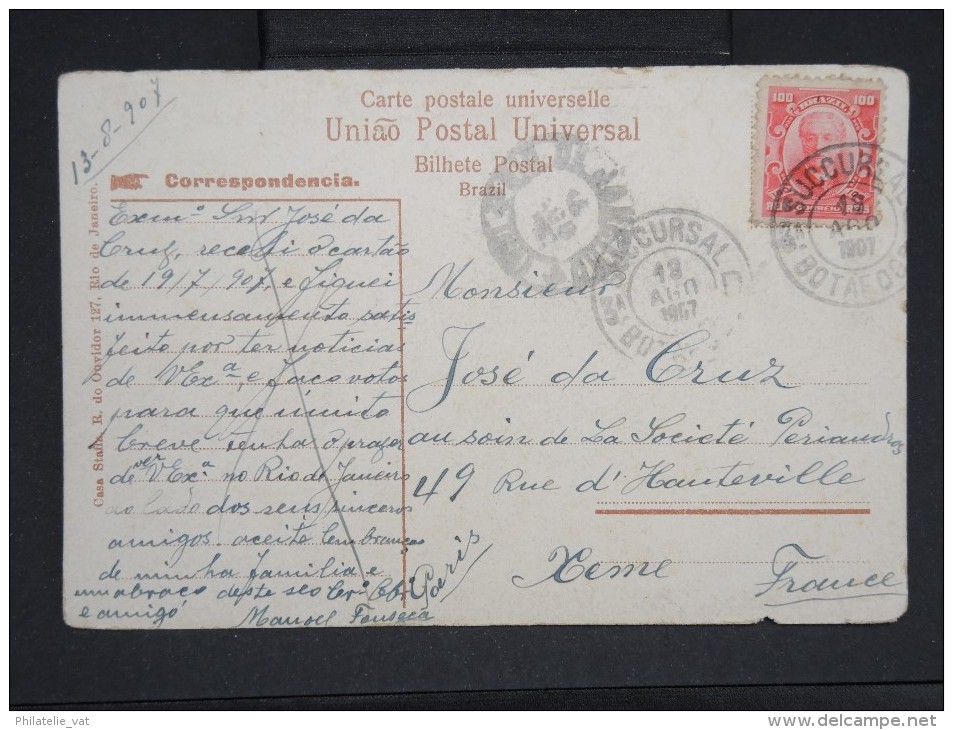 13-8-907
Carte postale universelle
União Postal Universal
Bilhete Postal
Brazil
Correspondencia.
100 BRAZIL 100
SUCCURSAL
13
AGO
1907
BOTAFOGO
SUCCURSAL D
13
AGO
1907
Casa Staffa, R. do Ouvidor 127, Rio de Janeiro.
Exmº Snr José da
Cruz, recebi o cartão
de 19/7/907, e fiquei
immensamente satis
feito por ter noticias
de VExª e faço votos
para que muito
breve tenha o prazer
de ver VExª no Rio de Janeiro
ao lado dos seus sinceros
amigos. aceite lembranças
de minha familia e
um abraço deste seo
e amigo
Manoel Fonseca
Monsieur
José da Cruz
au soin de La Societé Periandros
49 Rue d'Hauteville
Paris
Xeme
France
Philatelie_vat
delcampe.net